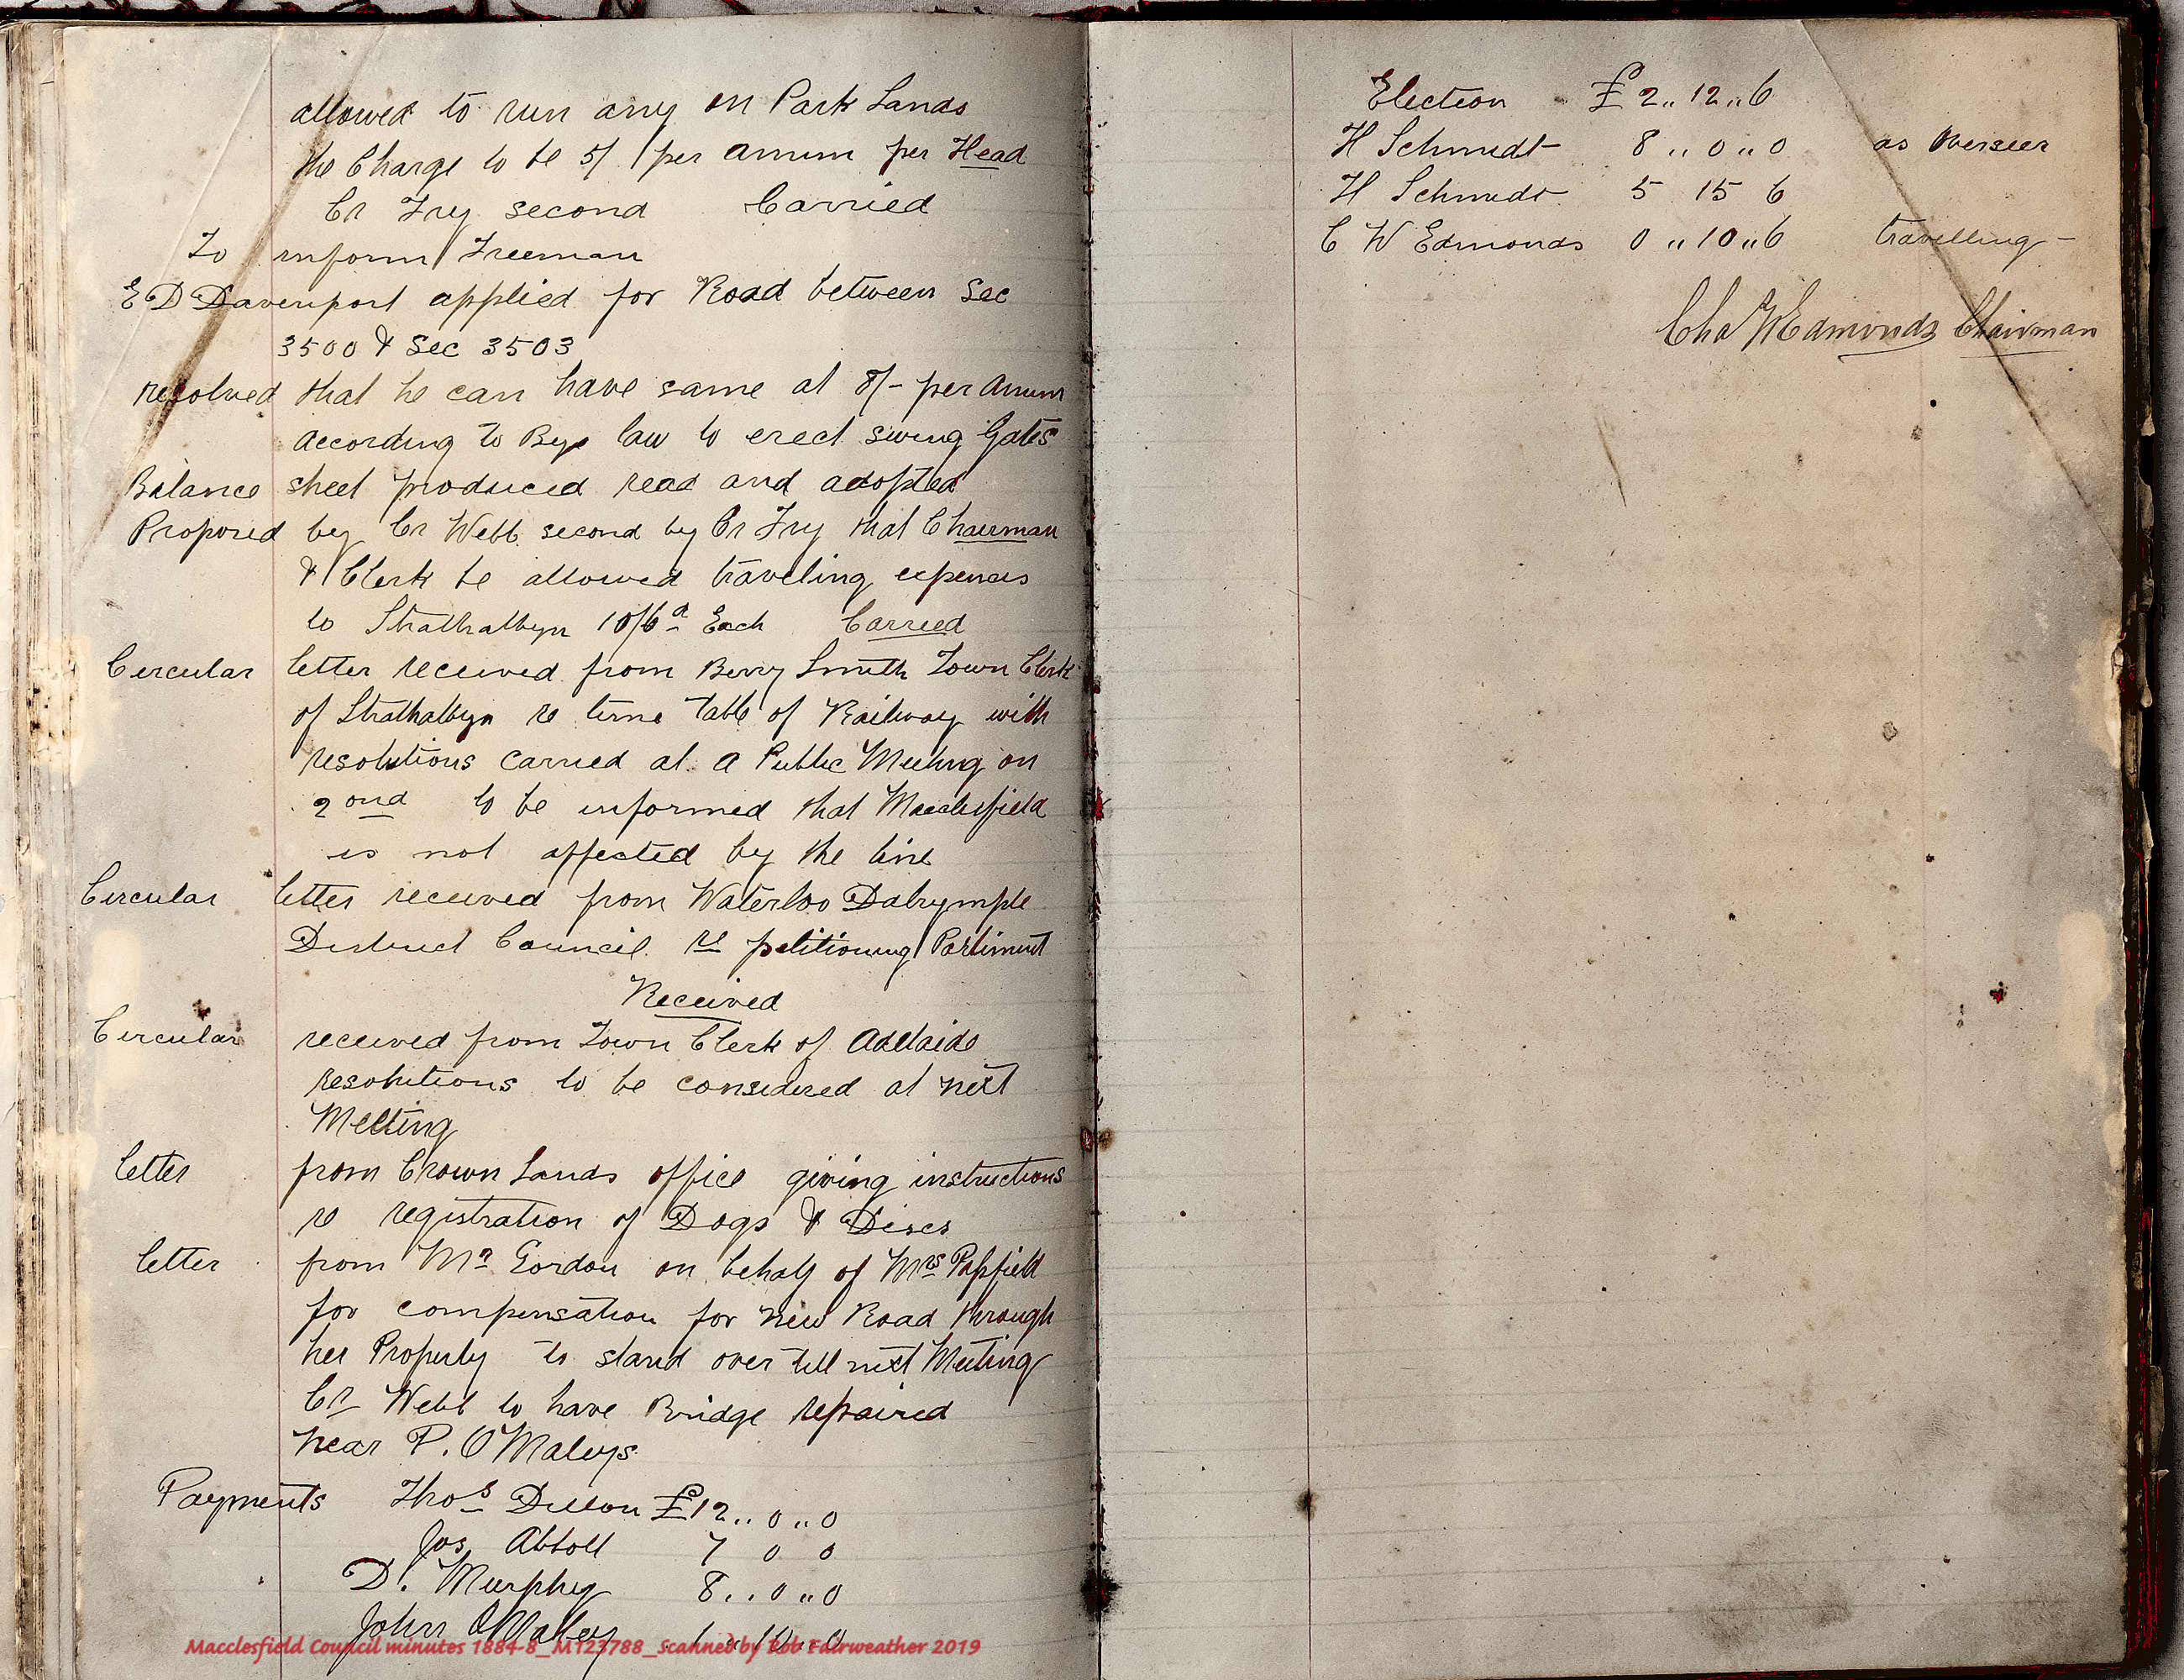 allowed to run any on Park Lands
the Charge to be 5/ per annum per Head
Cr Fry second Carried
To inform Freeman
E D Davenport applied for Road between Sec
3500 & Sec 3503
resolved that he can have same at 8/- per Anum
according to Bye law to erect swing Gates
Balance sheet produced read and adopted
Proposed by Cr Webb second by Cr Fry that Chairman
& Clerk be allowed traveling expences
to Strathalbyn 10/6d Each Carried
Circular letter received from Berry Smith Town Clerk
of Strathalbyn re time Table of Railway with
resolutions carried at a Public Meeting on
2ond to be informed that Macclesfield
is not affected by the line
Circular letter received from Waterloo Dalrymple
District Council re petitioning Parliment
Received
Circular received from Town Clerk of Adelaide
resolutions to be considered at next
Meeting
letter from Crown Lands office giving instructions
re registration of Dogs & Discs
letter from Mr Gordon on behalf of Mrs
for compensation for New Road through
her Property to stand over till next Meeting
Cr Webb to have Bridge repaired
near P. O'Maleys
Payments Thos Dillon £12..0..0
Jas Abbott 7 0 0
D. Murphy 8..0..0
John O'Maley 1..10..0
Macclesfield Council minutes 1884-8_M123788_scanned by Rob Fairweather 2019
Election £2..12..6
H Schmidt 8..0..0 as Overseer
H Schmidt 5 15 6
C W Edmonds 0..10..6 travelling -
Chs W Edmonds Chairman